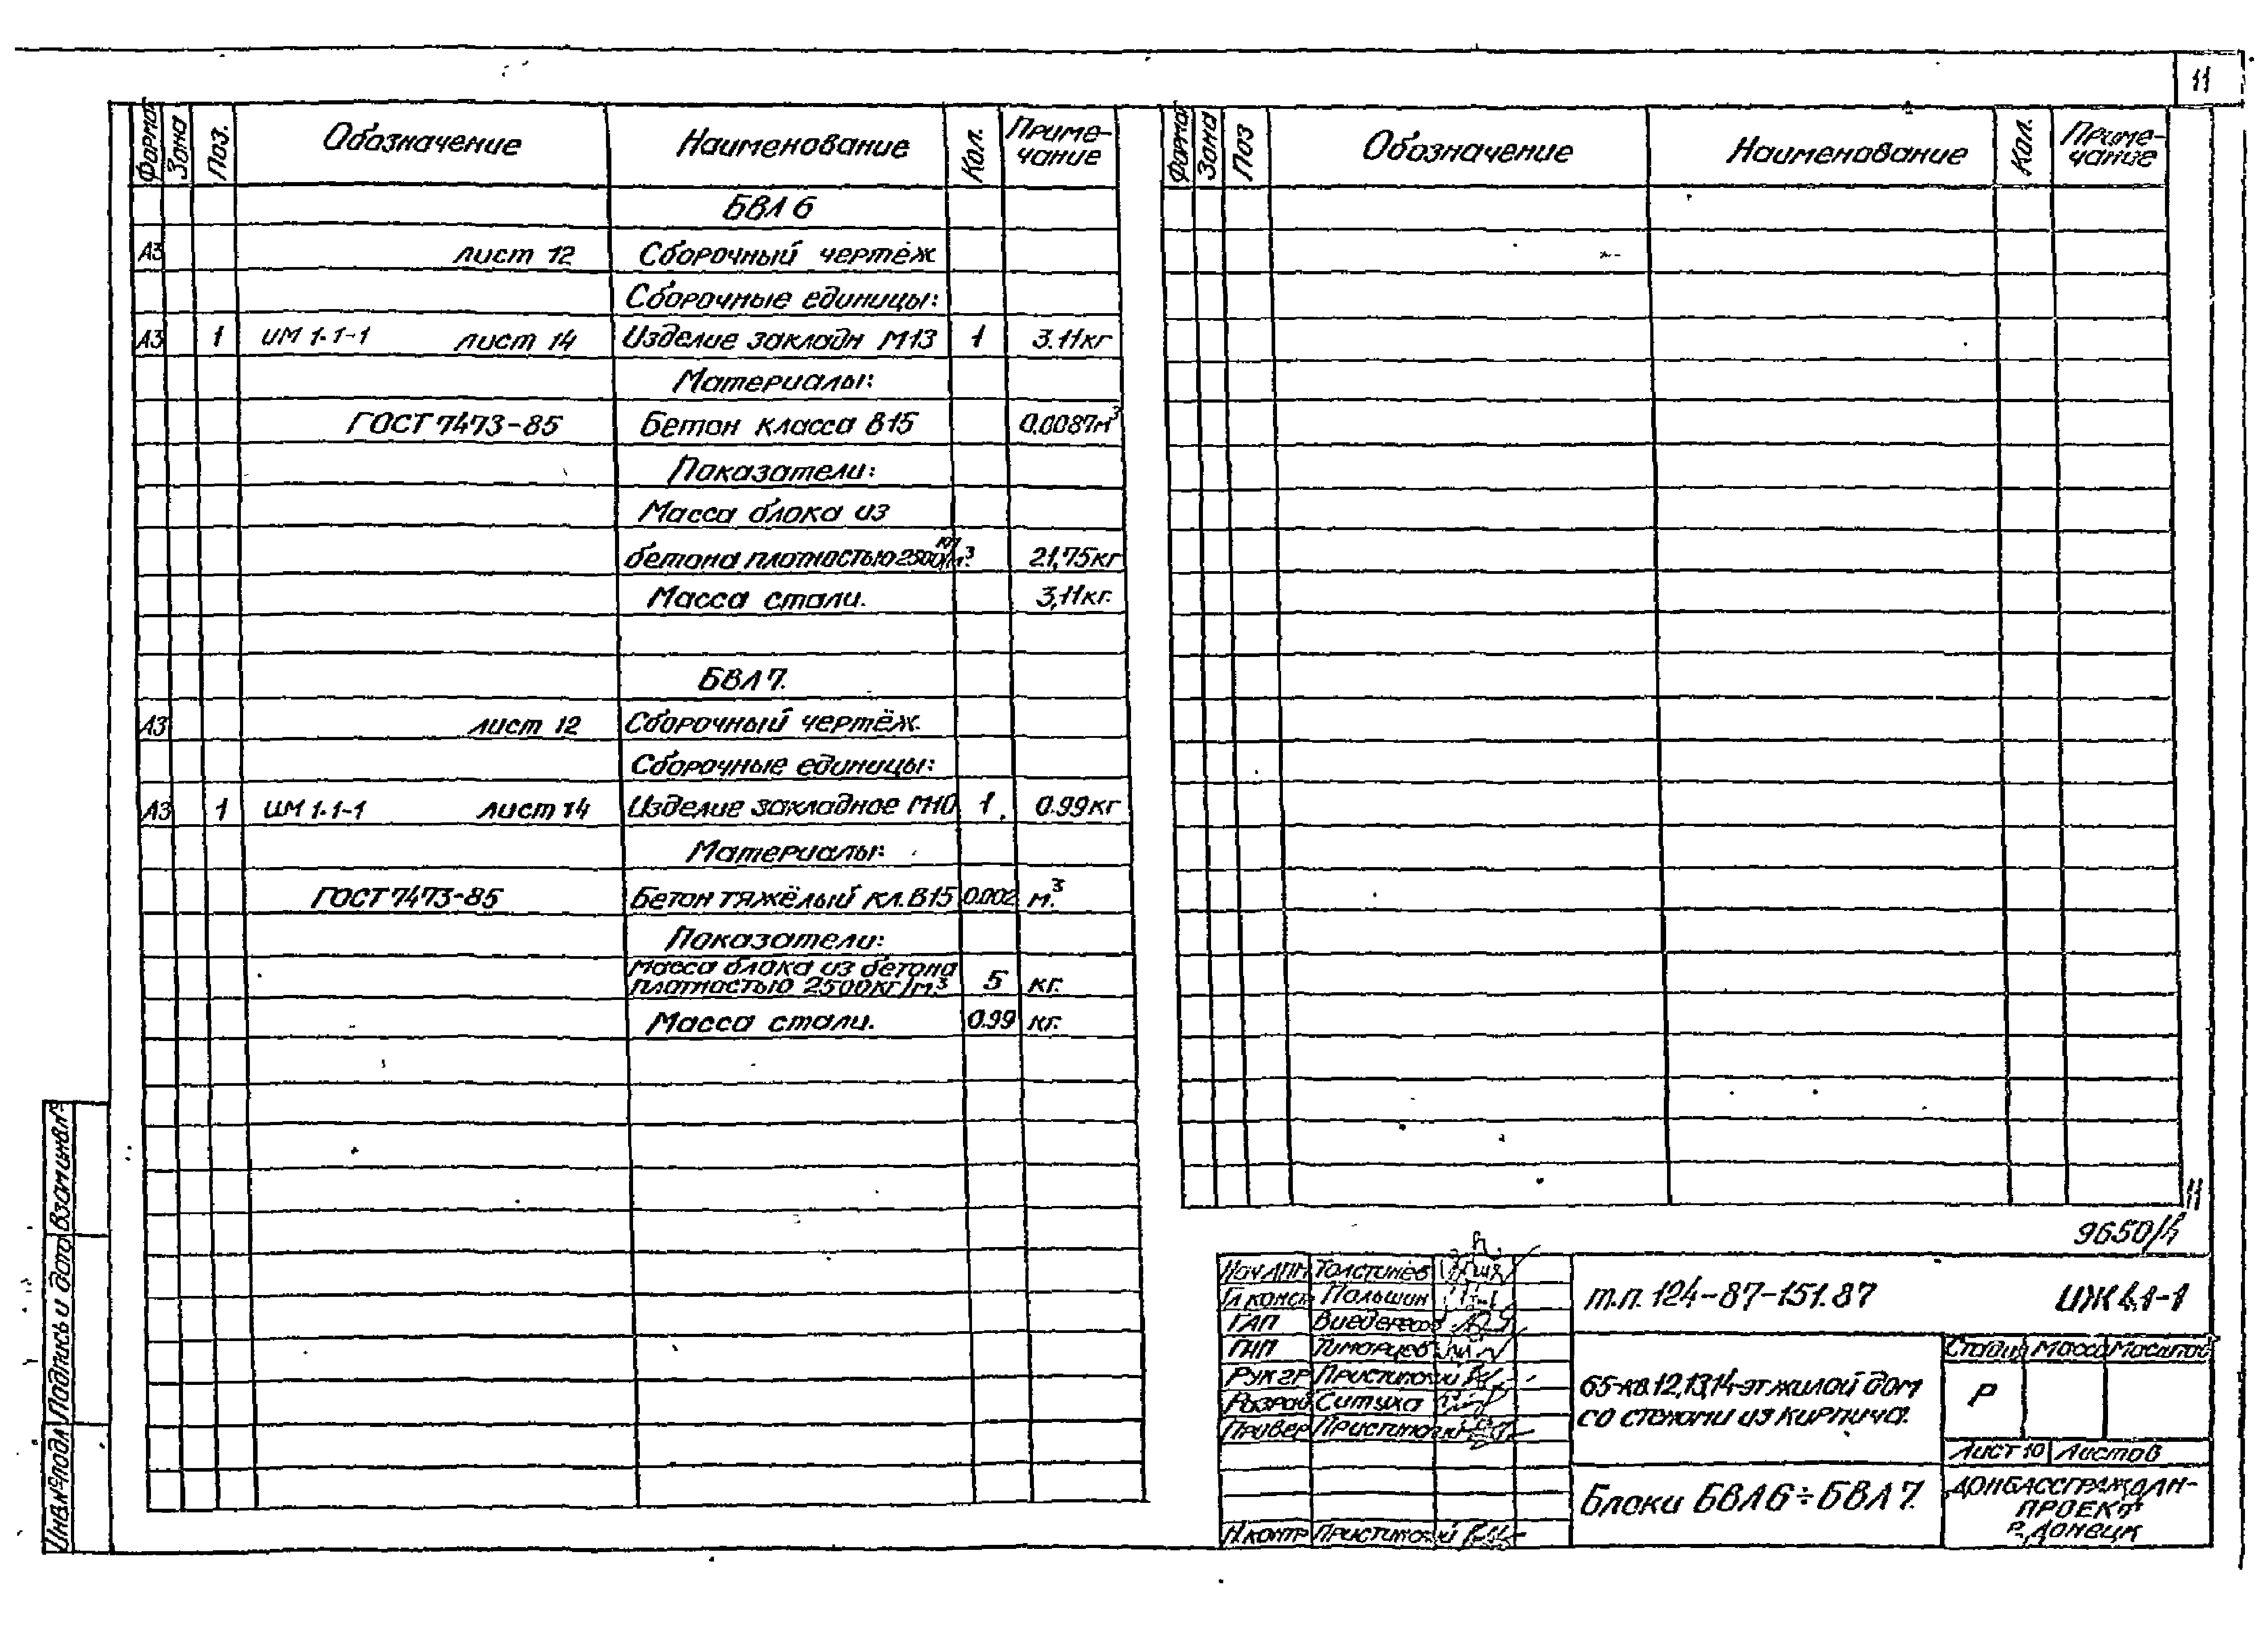 11
Формат Зона Поз. Обозначение Наименование Кол. Приме-
чание
БВЛ 6
А3 лист 12 Сборочный чертёж
Сборочные единицы:
А3 1 ИМ 1.1-1 лист 14 Изделие закладн М13 1 3.11кг
Материалы:
ГОСТ 7473-85 Бетон класса В15 0.0087м³
Показатели:
Масса блока из
бетона плотностью 2500кг/м³ 21,75кг
Масса стали. 3,11кг.
БВЛ 7.
А3 лист 12 Сборочный чертёж.
Сборочные единицы:
А3 1 ИМ 1.1-1 лист 14 Изделие закладное М10 1. 0.99кг
Материалы:
ГОСТ 7473-85 Бетон тяжёлый кл.В15 0.002 м.³
Показатели:
Масса блока из бетона
плотностью 2500кг/м³ 5 кг.
Масса стали. 0.99 кг.
Формат Зона Поз Обозначение Наименование Кол. Приме-
чание
11
9650/4
Нач АПМ Толстинёв
Гл констр Польшин
ГАП
ГИП
Рук гр
Разраб Ситуха
Провер
Н.контр
т.п. 124-87-151.87 ИЖ 1.1-1
65-кв.12,13,14-эт жилой дом
со стенами из кирпича.
Стадия Масса Масштаб
Р
Лист 10 Листов
Блоки БВЛ6÷БВЛ7.
ДОНБАССГРАЖДАН-
ПРОЕКТ
г. Донецк
Инв.№подл Подпись и дата Взам.инв.№